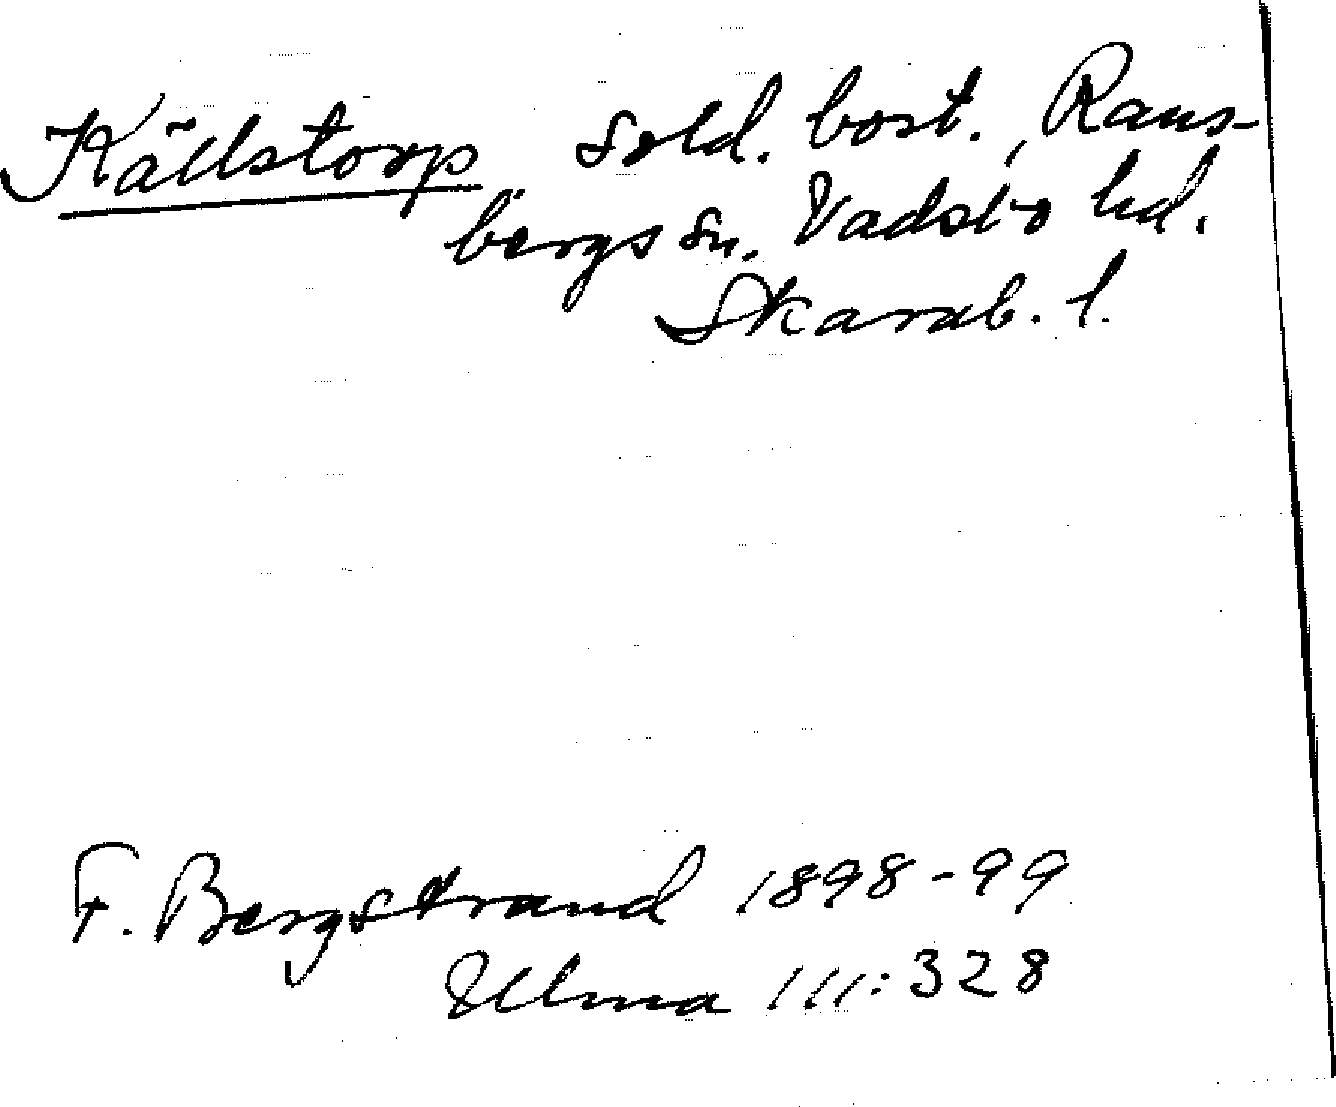 Källstorp sold. bost., Rans-
bergs sn. Vadsbo hd.
Skarab. l.
F. Bergstrand 1898-99
Ulma 111:328